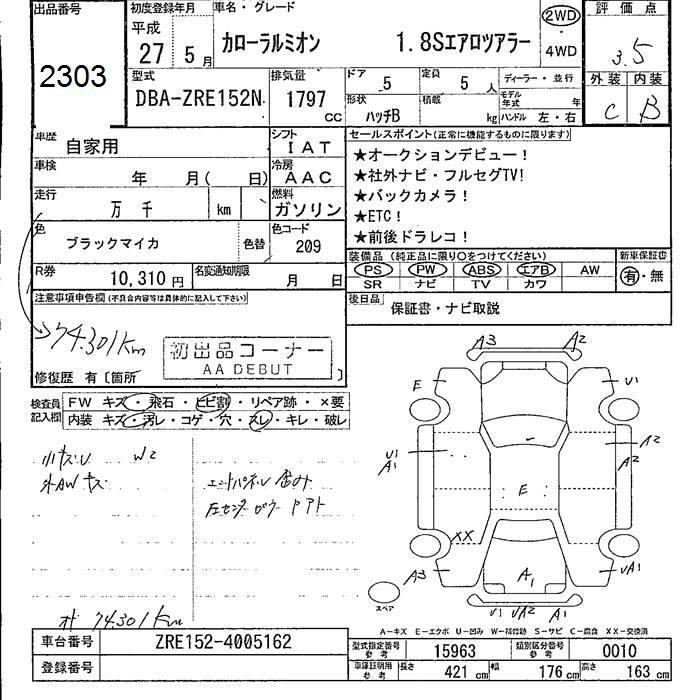 出品番号
2303
初度登録年月
平成
27 5月
車名・グレード
カローラルミオン 1.8Sエアロツアラー
2WD
・
4WD
評価点
3.5
外装 内装
C B
型式
DBA-ZRE152N
排気量
1797 cc
ドア
5
定員
5 人
形状
ハッチB
積載
kg
ディーラー・並行
モデル年式 年
ハンドル 左・右
車歴
自家用
シフト
IAT
車検
年 月( 日)
冷房
AAC
走行
万 千 km
燃料
ガソリン
色
ブラックマイカ
色替
色コード
209
R券
10,310 円
名変通知期限
月 日
セールスポイント(正常に機能するものに限ります)
★オークションデビュー!
★社外ナビ・フルセグTV!
★バックカメラ!
★ETC!
★前後ドラレコ!
装備品(純正品に限り○をつけてください)
PS PW ABS エアB AW
SR ナビ TV カワ
新車保証書
有・無
後日品
保証書・ナビ取説
注意事項申告欄(不具合内容等は具体的に記入して下さい)
74.301Km
初出品コーナー
AA DEBUT
修復歴 有〔箇所 〕
検査員記入欄
FW キズ・飛石・ヒビ割・リペア跡・×要
内装 キズ・汚レ・コゲ・穴・スレ・キレ・破レ
小キズU W2
外AWキズ
エンドパネル歪み
左センターピラー Pアト
オ 74.301Km
A3 A2
E U1
U1
A1
A2
A2
E
XX
A3
A1
UA1
U1 UA2 A1
スペア
A―キズ E―エクボ U―凹み W―補修跡 S―サビ C―腐食 XX―交換済
車台番号
ZRE152-4005162
登録番号
型式指定番号 参考
15963
類別区分番号 参考
0010
車庫証明用 参考
長さ 421 cm 幅 176 cm 高さ 163 cm